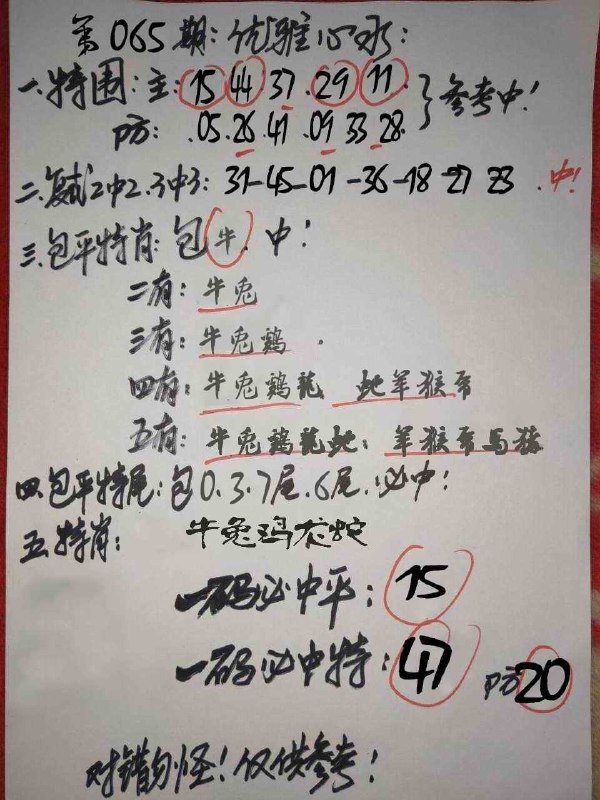 第065期:优雅心水:
一.特围:主:15 44 37.29 11
参考中!
P方: .05.26.41.09 33 28.
二.复式2中2.3中3: 31-45-01-36-18-27 23 .中!
三.包平特肖:包牛.中!
二有:牛兔
三有:牛兔鸡.
四有:牛兔鸡龍 蛇羊猴
五有:牛兔鸡龍蛇: 羊猴马猪
四.包平特尾:包0.3.7尾.6尾.必中!
五.特肖: 牛兔鸡龙蛇
一码必中平: 15
一码必中特: 47 P方20
对错勿怪!仅供参考!